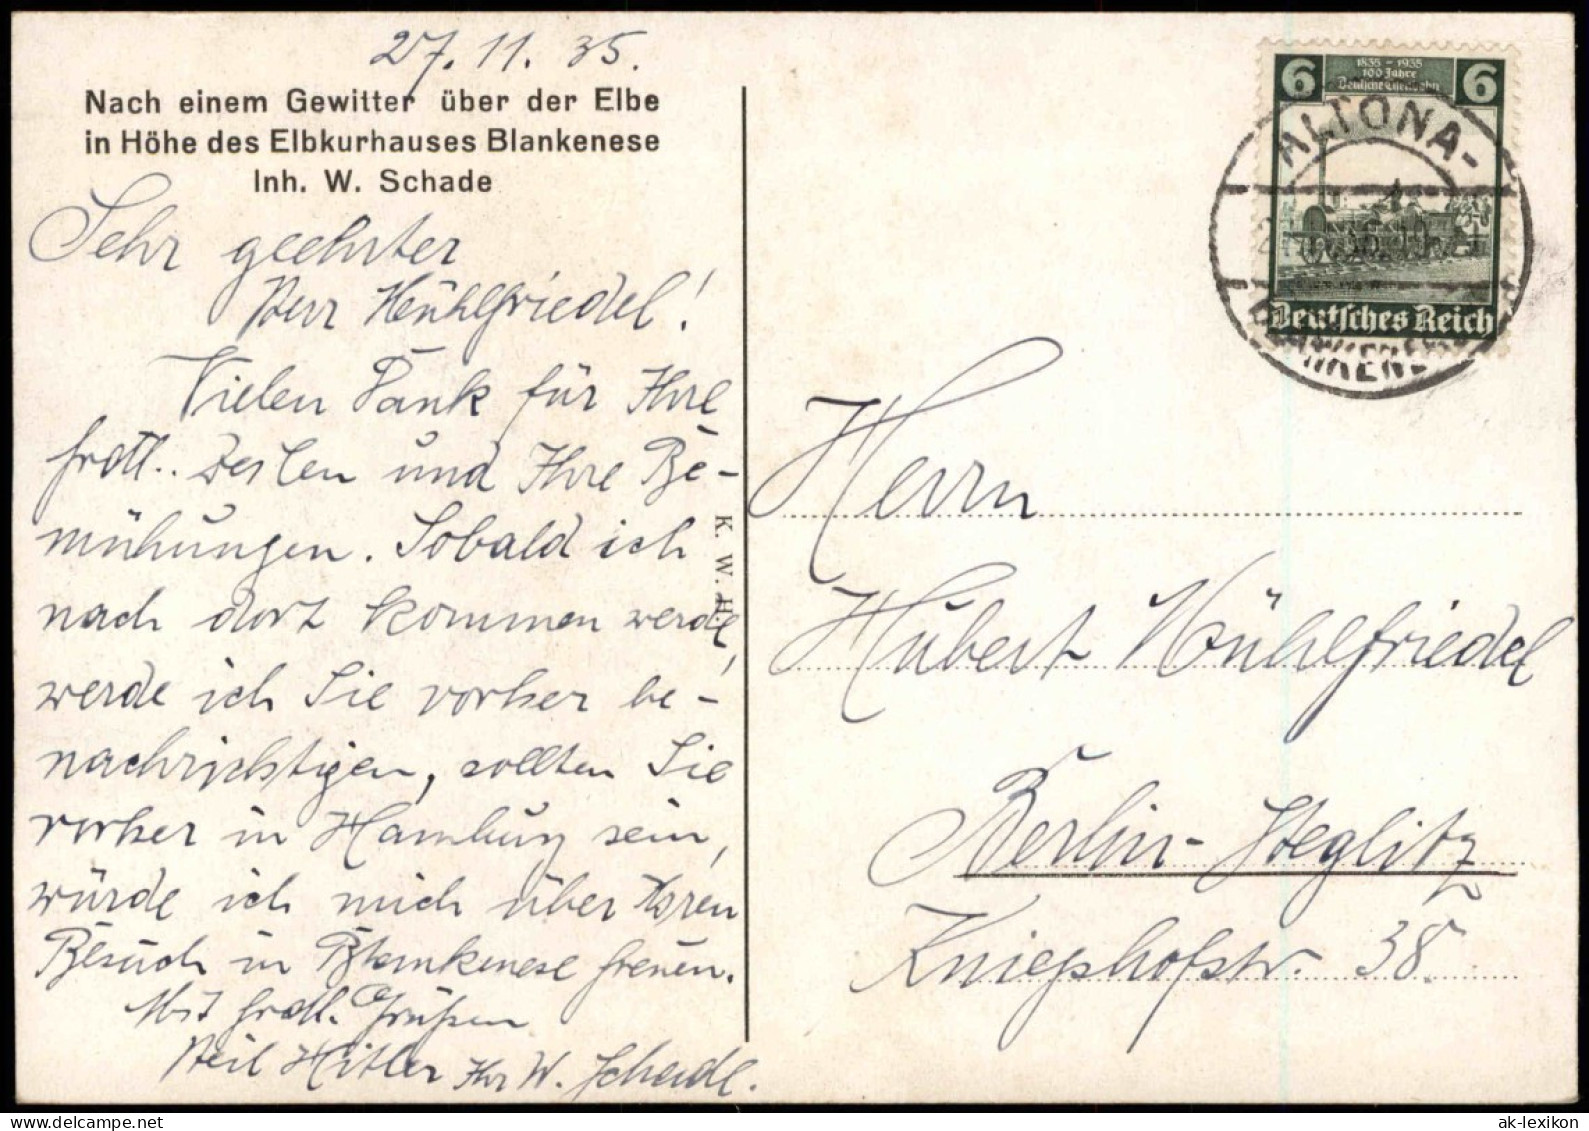 27. 11. 35.
Nach einem Gewitter über der Elbe
in Höhe des Elbkurhauses Blankenese
Inh. W. Schade
Sehr geehrter
Herr Mühlfriedel!
Vielen Dank für Ihre
frdl. Zeilen und Ihre Be-
mühungen. Sobald ich
nach dort kommen werde,
werde ich Sie vorher be-
nachrichtigen, sollten Sie
vorher in Hamburg sein,
würde ich mich über Ihren
Besuch in Blankenese freuen.
Mit frdl. Grüßen
Heil Hitler Ihr W. Schade.
K. W. H.
6 1835 - 1935 6
100 Jahre
Deutsche Eisenbahn
Deutsches Reich
ALTONA-
BLANKENESE
Herrn
Hubert Mühlfriedel
Berlin-Steglitz
Kniephofstr. 38.
ak-lexikon